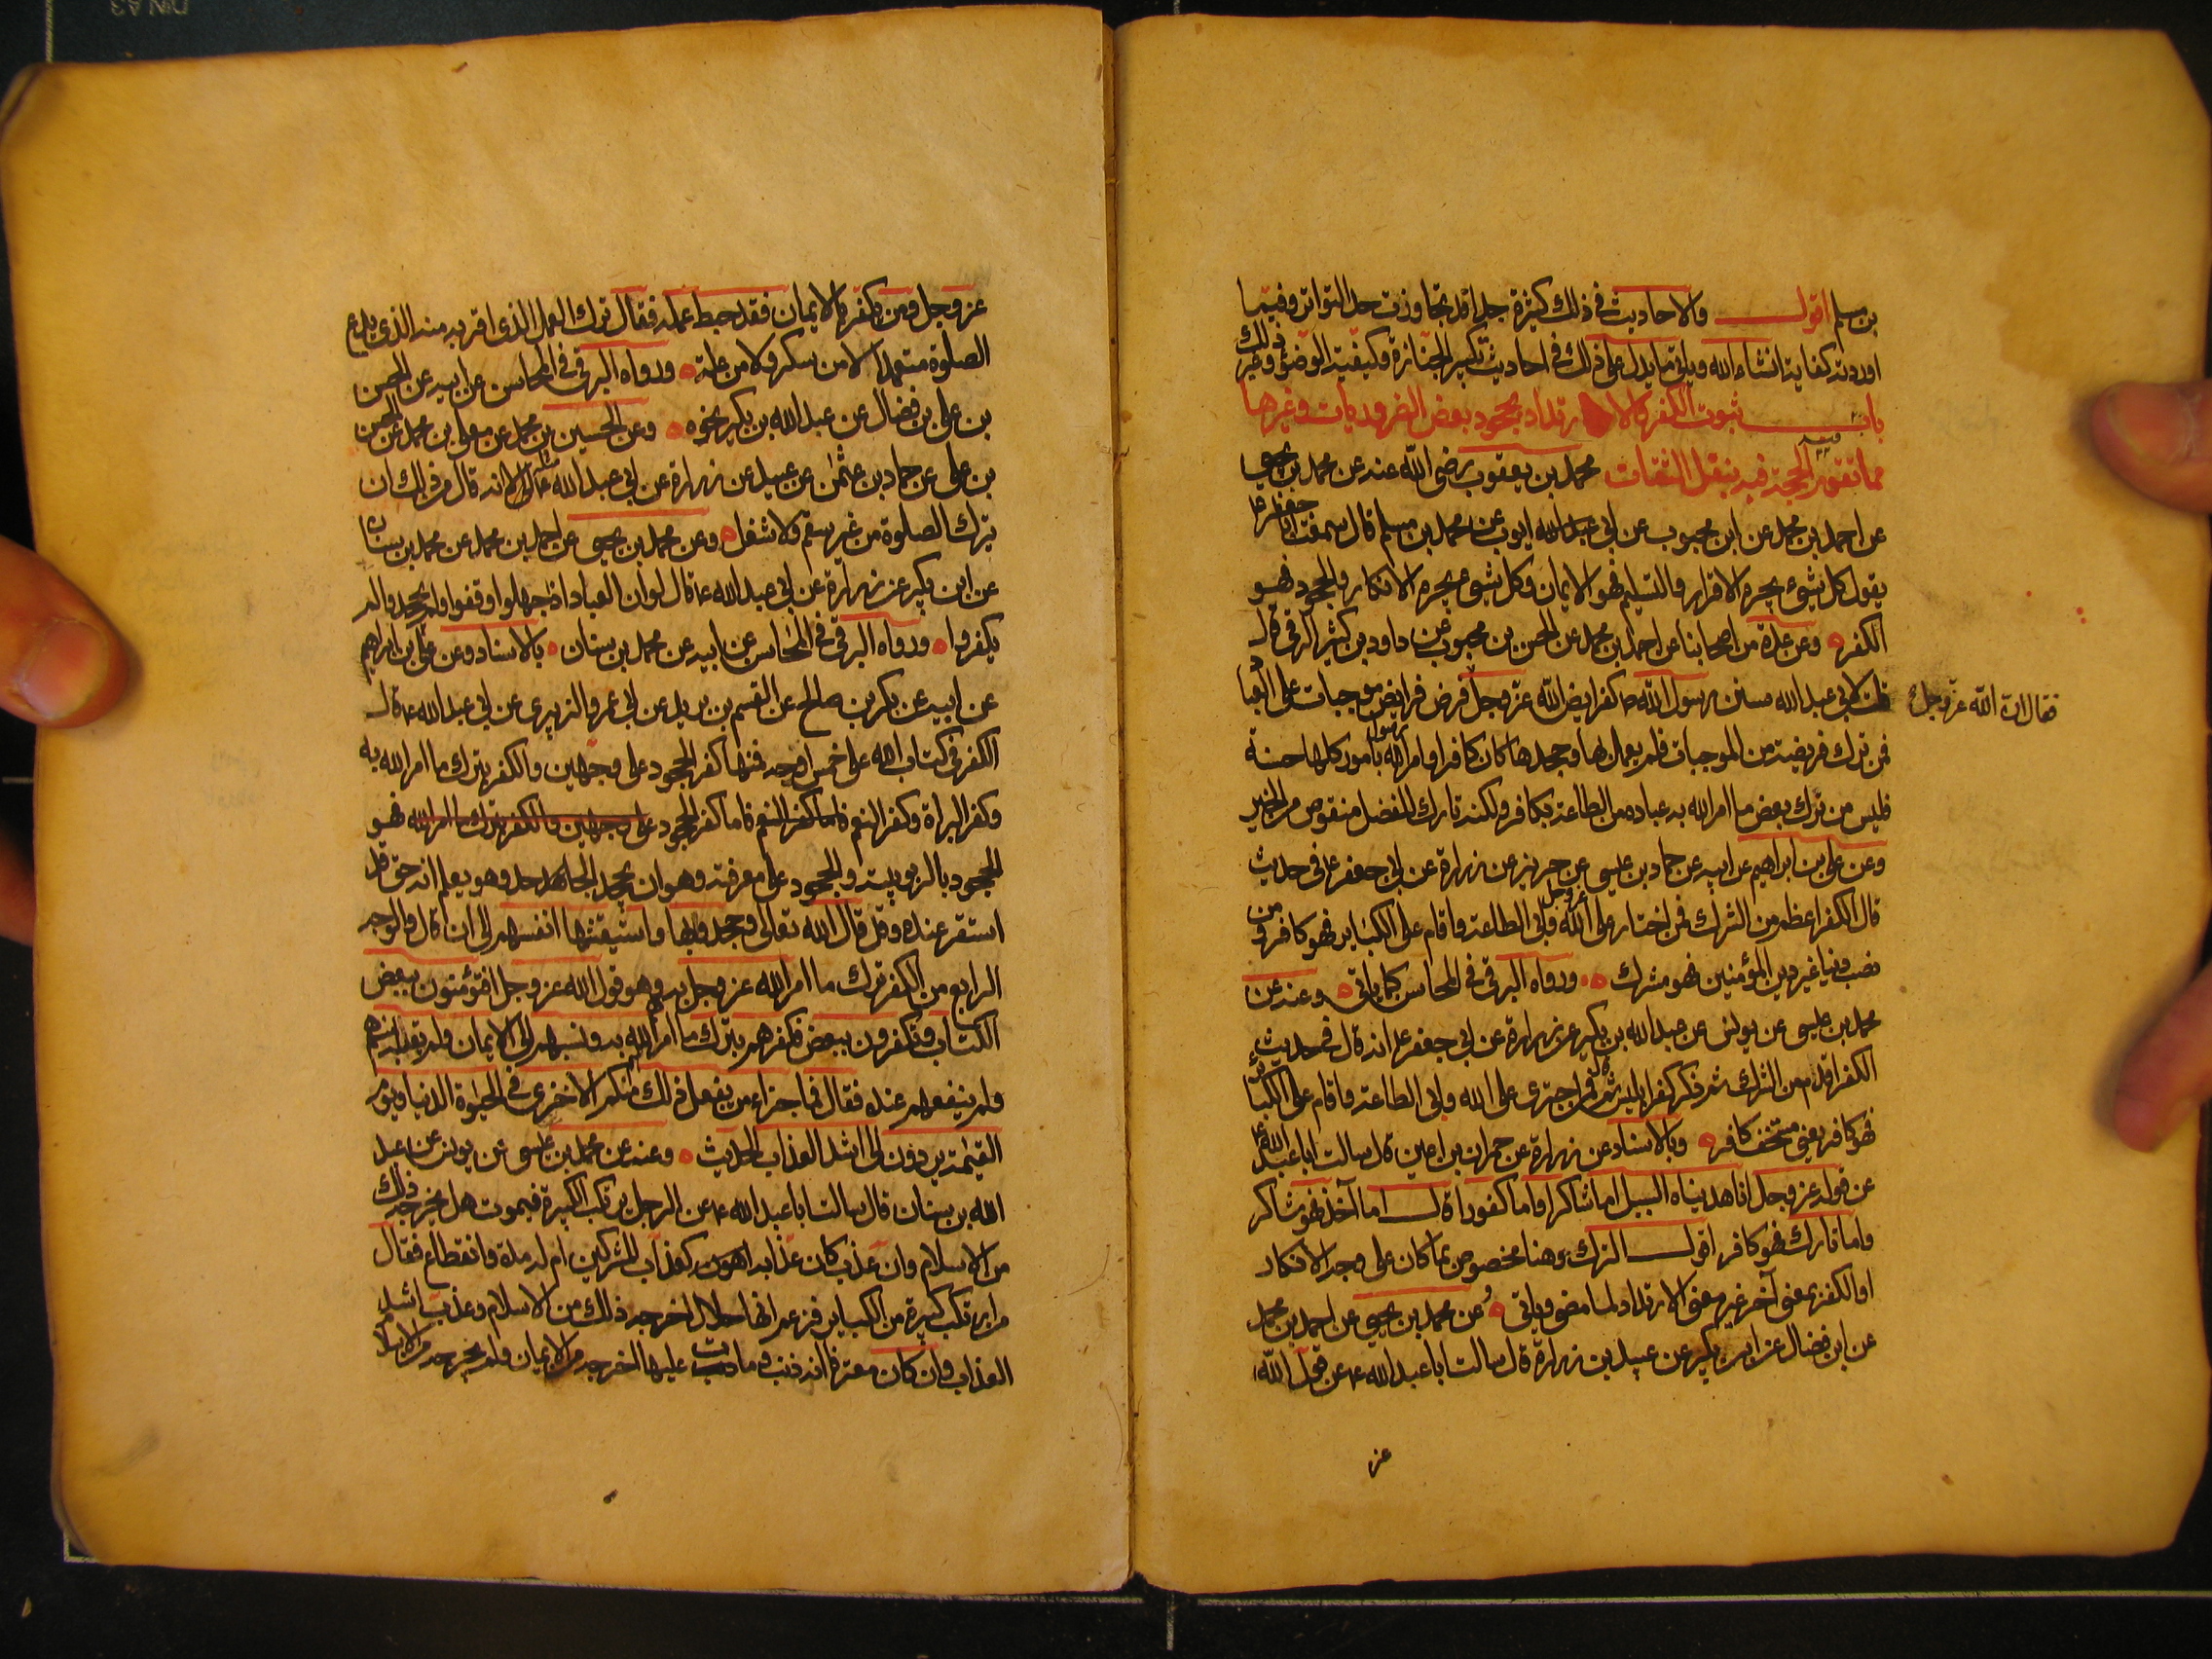 بن مسلم اقول والاحاديث في ذلك كثيرة جدا قد تجاوزت حد التواتر وفيما
اوردته كفاية انشاء الله وياتي ما يدل على ذلك في احاديث تكبير الجنازة وكيفية الوضوء وغير ذلك
باب ثبوت الكفر والارتداد بجحود بعض الضروريات وغيرها
مما تقوم الحجة فيه بنقل الثقات محمد بن يعقوب رضى الله عنه عن محمد بن يحيى
عن احمد بن محمد عن ابن محبوب عن ابي ايوب عن محمد بن مسلم قال سمعت ابا جعفر ع
يقول كل شيء يجره الاقرار والتسليم فهو الايمان وكل شيء يجره الانكار والجحود فهو
الكفر وعن عدة من اصحابنا عن احمد بن محمد عن الحسن بن محبوب عن داود بن كثير الرقي قال
قلت لابي عبد الله سنن رسول الله ص كفرايض الله عز وجل فرض فرايض موجبات على العباد
فقال ان الله عز وجل
فمن ترك فريضة من الموجبات فلم يعمل بها وجحدها كان كافرا وامر رسول الله بامور كلها حسنة
فليس من ترك بعض ما امر الله به عباده من الطاعة بكافر ولكنه تارك للفضل منقوص من الخير
وعن علي بن ابراهيم عن ابيه عن حماد بن عيسى عن حريز عن زرارة عن ابي جعفر ع في حديث
قال الكفر اعظم من الشرك فمن اختار على الله عز وجل وابى الطاعة واقام على الكباير فهو كافر ومن
نصب دينا غير دين المؤمنين فهو مشرك ورواه البرقي في المحاسن كما ياتي وعنه عن
محمد بن عيسى عن يونس عن عبد الله بن بكير عن زرارة عن ابي جعفر ع انه قال في حديث
الكفر اقدم من الشرك ثم ذكر كفر ابليس ثم قال فمن اجترى على الله وابى الطاعة واقام على الكباير
فهو كافر يعني مستخف كافر وبالاسناد عن زرارة عن حمران بن اعين قال سالت ابا عبد الله ع
عن قوله عز وجل انا هديناه السبيل اما شاكرا واما كفورا قال اما آخذ فهو شاكر
واما تارك فهو كافر اقول الترك وهنا مخصوص بما كان على وجه الانكار
او الكفر بمعنى آخر غير معنى الارتداد لما مضى وياتي وعن محمد بن يحيى عن احمد بن محمد
عن ابن فضال عن ابن بكير عن عبيد بن زرارة قال سالت ابا عبد الله ع عن قول الله
عز
عز وجل ومن يكفر بالايمان فقد حبط عمله فقال ترك العمل الذي اقر به منه الذي يدع
الصلوة متعمدا لا من سكر ولا من علة ورواه البرقي في المحاسن عن ابيه عن الحسن
بن علي بن فضال عن عبد الله بن بكير نحوه وعن الحسين بن محمد عن معلى بن محمد عن الحسن
بن علي عن حماد بن عثمن عن عبيد عن زرارة عن ابي عبد الله ع الا انه قال من ذلك ان
يترك الصلوة من غير سقم ولا شغل وعن محمد بن يحيى عن احمد بن محمد عن محمد بن سنان
عن ابن بكير عن زرارة عن ابي عبد الله ع قال لو ان العباد اذ جهلوا وقفوا ولم يجحدوا لم
يكفروا ورواه البرقي في المحاسن عن ابيه عن محمد بن سنان بالاسناد وعن علي بن ابراهيم
عن ابيه عن بكر بن صالح عن القسم بن بريد عن ابي عمرو الزبيري عن ابي عبد الله ع قال
الكفر في كتاب الله على خمس اوجه فمنها كفر الجحود على وجهين والكفر بترك ما امر الله به
وكفر البراة وكفر النعم فاما كفر النعم فاما كفر الجحود على وجهين والكفر بترك ما امر الله فهو
الجحود بالربوبية والجحود على معرفته وهو ان يجحد الجاحد وهو يعلم انه حق قد
استقر عنده وقد قال الله تعالى وجحدوا بها واستيقنتها انفسهم الى ان قال والوجه
الرابع من الكفر ترك ما امر الله عز وجل به وهو قول الله عز وجل افتؤمنون ببعض
الكتاب وتكفرون ببعض فكفرهم بترك ما امر الله به ونسبهم الى الايمان ولم يقبله منهم
ولم ينفعهم عنده فقال فما جزاء من يفعل ذلك منكم الا خزي في الحيوة الدنيا ويوم
القيمة يردون الى اشد العذاب الحديث وعنه عن محمد بن عيسى عن يونس عن عبد
الله بن سنان قال سالت ابا عبد الله ع عن الرجل يرتكب الكبيرة فيموت هل يخرجه ذلك
من الاسلام وان عذب كان عذابه اهون كعذاب المشركين ام له مدة وانقطاع فقال
من ارتكب كبيرة من الكباير فزعم انها حلال اخرجه ذلك من الاسلام وعذب اشد
العذاب وان كان معترفا انه ذنب ومات عليها اخرجه من الايمان ولم يخرجه من الاسلام